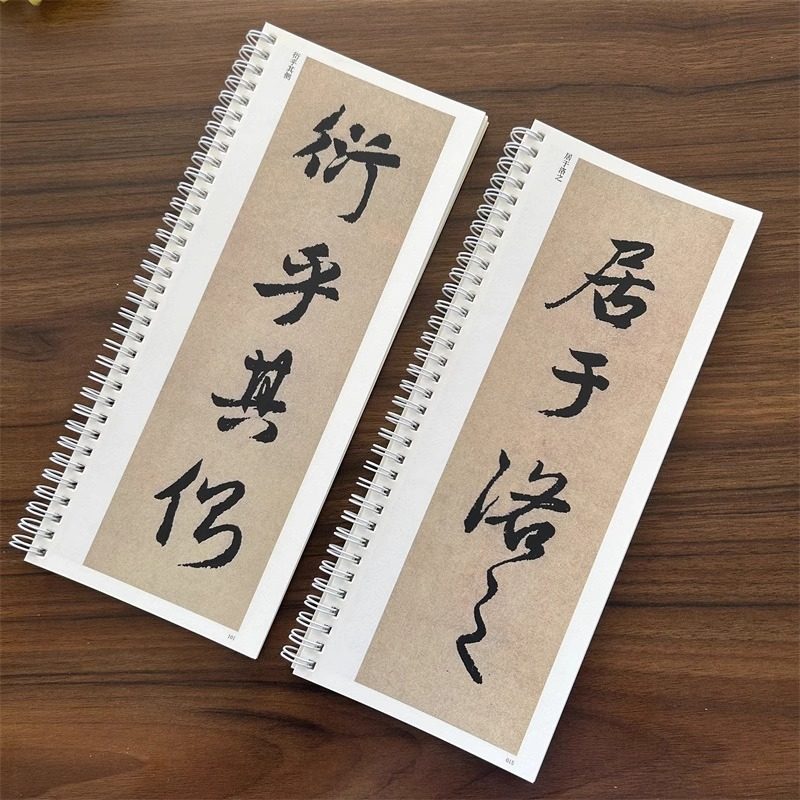 衍乎其侧
衍乎其侧
101
居于洛之
居于洛之
015